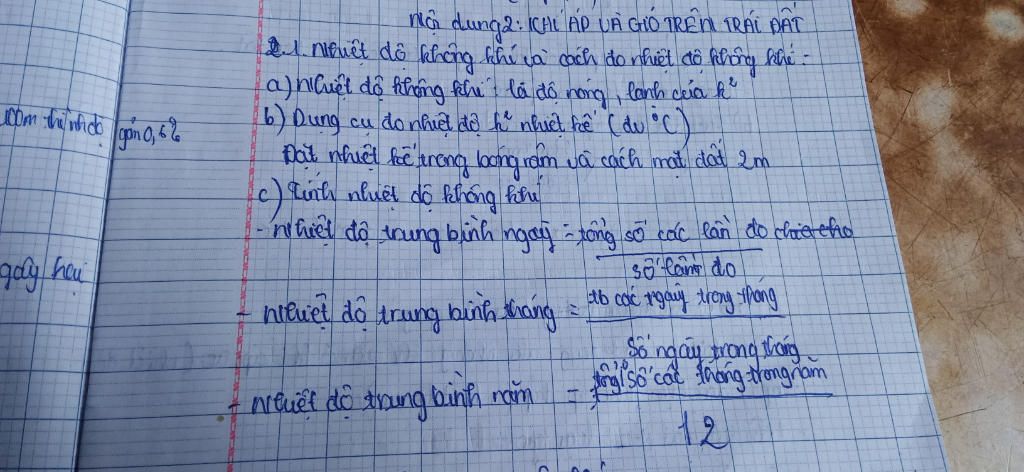 Nội dung 2: KHÍ ÁP VÀ GIÓ TRÊN TRÁI ĐẤT
2.1 nhiệt độ không khí và cách đo nhiệt độ không khí:
a) nhiệt độ không khí: là độ nóng, lạnh của k²
b) Dụng cụ đo nhiệt độ k² nhiệt kế (đv °C)
Đặt nhiệt kế trong bóng râm và cách mặt đất 2m
c) tính nhiệt độ không khí
- nhiệt độ trung bình ngày = tổng số các lần đo chia cho
số lần đo
- nhiệt độ trung bình tháng = tb các ngày trong tháng
số ngày trong tháng
- nhiệt độ trung bình năm = tổng số các tháng trong năm
12
100m thì nh độ giảm 0,6°C
gây hại